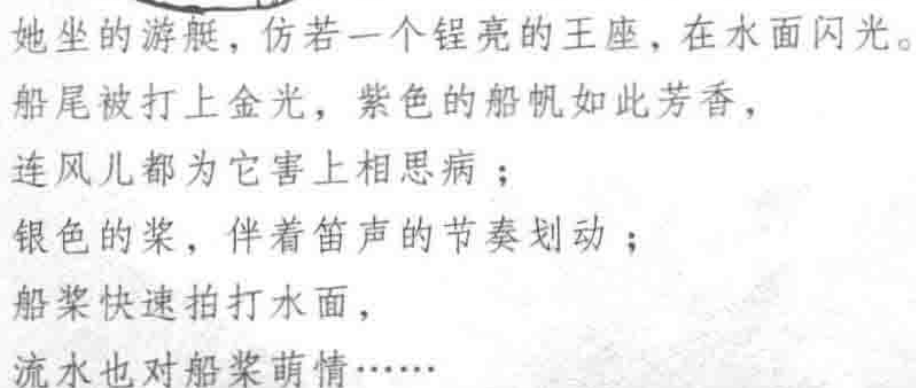 她坐的游艇，仿若一个锃亮的王座，在水面闪光。
船尾被打上金光，紫色的船帆如此芳香，
连风儿都为它害上相思病；
银色的桨，伴着笛声的节奏划动；
船桨快速拍打水面，
流水也对船桨萌情……